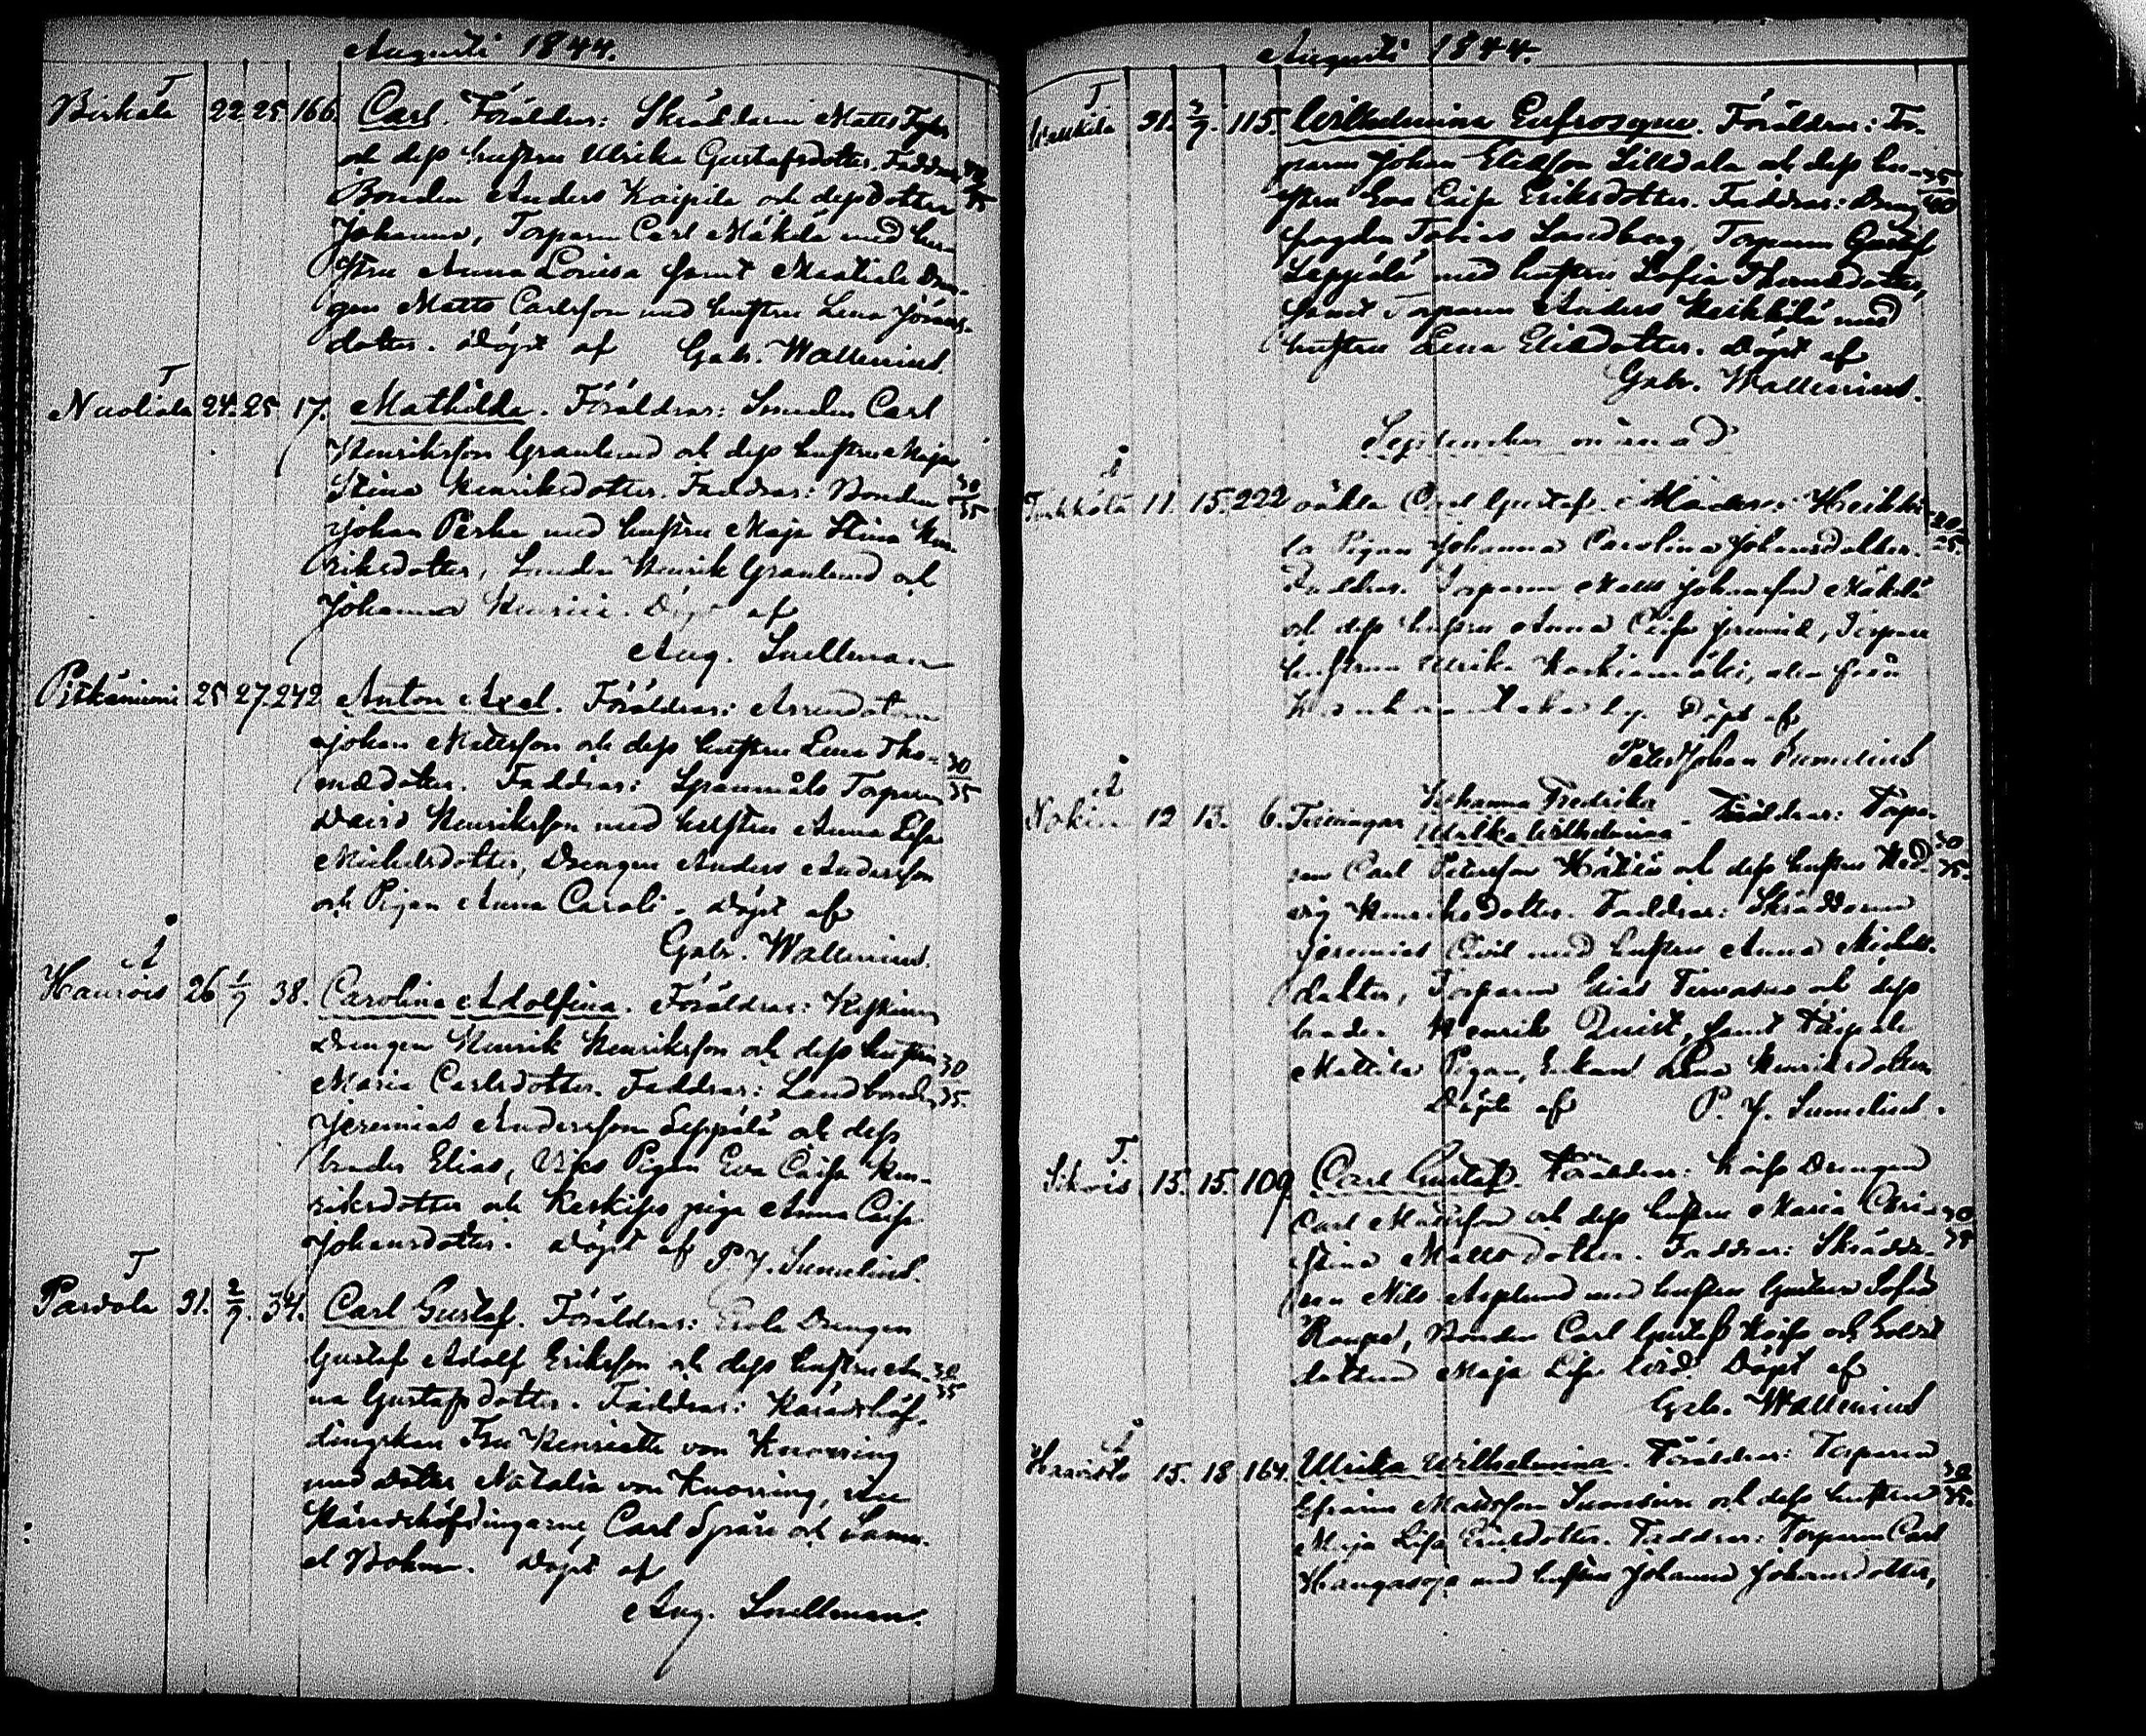 Augusti 1844.
T
Birkala 22 25 166 Carl. Föräldrar: Skräddaren Matts
och dess hustru Ulrika Gustafsdotter. Faddrar
Bonden Anders Kaipila och dess dotter
Johanna, Torparn Carl Mäkelä med hu-
stru Anna Lovisa samt Mattila Drän-
gen Matts Carlsson med hustru Lena Jörans-
dotter. Döpt af Gabr. Wallenius.
T
Nuoliala 24. 25 17. Mathilda. Föräldrar: Smeden Carl
Henriksson Granlund och dess hustru Maja
Stina Henriksdotter. Faddrar: Bonden 30/35
Johan Perho med hustru Maja Stina Hen-
riksdotter, Smeden Henrik Granlund och
Johanna Henrici. Döpt af
Aug. Snellman
Pitkäniemi 25 27. 242 Anton Axel. Föräldrar: Arrendatorn
Johan Mattsson och dess hustru Lena Tho- 30/35
mædotter. Faddrar: Spannmåls Torparn
David Henriksson med hustru Anna Lisa
Michelsdotter, Drengen Anders Andersson
och Pigan Anna Caroli. Döpt af
Gabr. Wallenius.
Haurois 26 1/9 38. Carolina Adolfina. Föräldrar:
Drengen Henrik Henriksson och dess hustru 30/35.
Maria Carlsdotter. Faddrar: Landbonden
Jeremias Andersson Seppälä och dess
broder Elias, Pigan Eva Caisa Hen-
riksdotter och piga Anna Caisa
Johansdotter. Döpt af P. J. Sumelius.
T
Partola 31. 2/9. 34. Carl Gustaf. Föräldrar: Drengen
Gustaf Adolf Eriksson och dess hustru An- 30/35
na Gustafsdotter. Faddrar: Häradshöf-
dingskan Fru Henriette von Knorring
med dotter Natalia von Knorring,
Häradshöfdingarne Carl Spåre och Samu-
el Bohm. Döpt af
Aug. Snellman.
Augusti 1844.
T
31. 2/9. 115. Wilhelmina Eufrosyne. Föräldrar: Tor-
parn Johan Eliasson Lilledala och dess hu- 35/40
stru Eva Caisa Eriksdotter. Faddrar: Dreng
fogden Tobias Sandberg, Torparn Gustaf
Leppälä med hustru Sofia Thomædotter,
samt Torparn Anders Heikkilä med
hustru Lena Eliædotter. Döpt af
Gabr. Wallenius.
September månad
11. 15. 222 oäkta Carl Gustaf. Moder: Heikki-
la Pigan Johanna Carolina Johansdotter.
Faddrar. Torparn Matts Johansson Mäkelä
och dess hustru Anna Caisa, Torpare
hustrun Ulrika, alla från
Döpt af
Peter Johan Sumelius
Nokia 12 13. 6. Tvillingar Johanna Fredrika
Ulrika Wilhelmina Föräldrar: Torpa-
ren Carl Petersson och dess hustru Hed-
vig Henriksdotter. Faddrar: Skräddaren
Jeremias med hustru Anna Michels-
dotter, Torparn Elias Tervanen och dess
broder Henrik Quist, samt
Mattila Pigan, Enkan Lena Henriksdotter
Döpte af P. J. Sumelius.
T
Sikois 15. 15. 109 Carl Gustaf. Föräldrar: Drengen
Carl Mattsson och dess hustru Maria Chri- 30/35
stina Mattsdotter. Faddrar: Skrädda-
ren Nils Asplund med hustru Gustava Sofia
Bonden Carl Gustaf och Soldat
dottren Maja Lisa Döpt af
Gabr. Wallenius
Haavisto 15. 18 164. Ulrika Wilhelmina. Föräldrar: Torparen
Efraim Mattsson och dess hustru
Maja Lisa. Faddrar: Torparen Carl
Kangasoja med hustru Johanna Johansdotter,